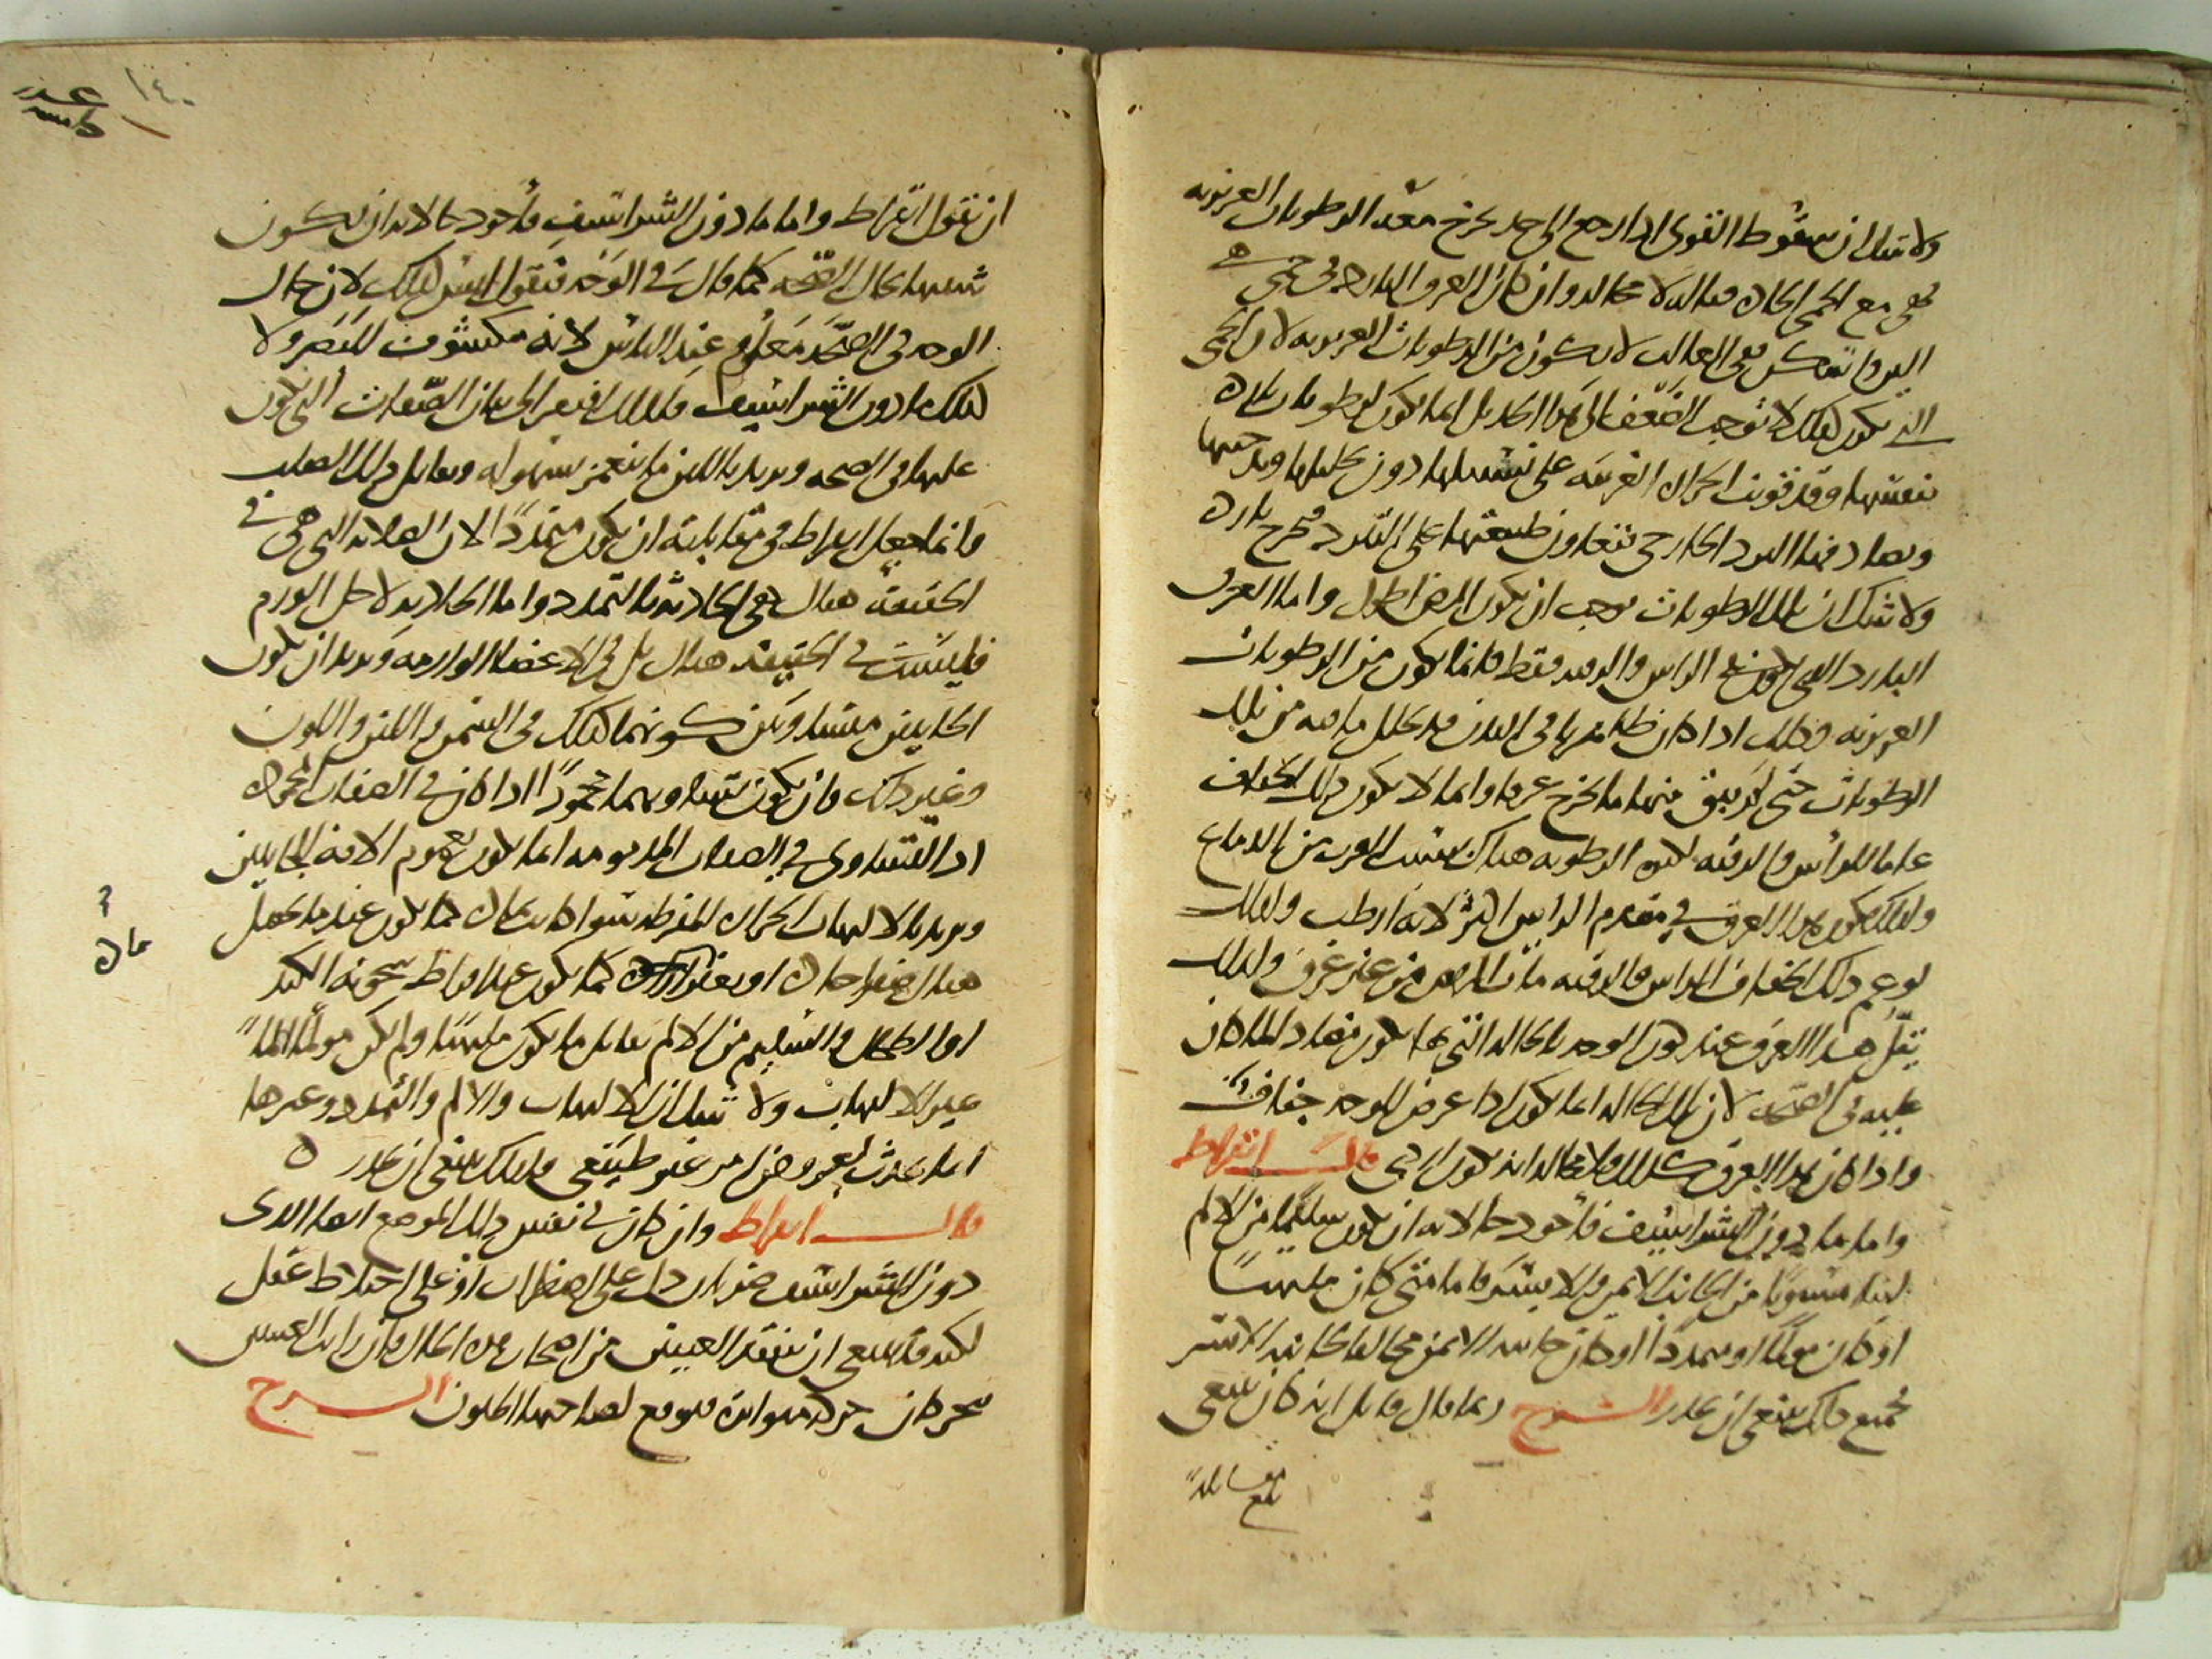 ولا شك ان سقوط القوى اذا رجع الى حد يخرج معه الرطوبات الغريزية
فهى مع الحمى الحادة قتالة لا محالة وان كان العرق البارد فى حمى
لانكون من الرطوبات الغريزية لان الحمى
التى تكون كذلك لا توجب الضعف الى هذا الحد بل انما تكون لرطوبات باردة
بنفسها وقد قويت الحرارة الغريبة على تسييلها دون تحليلها وتسخينها
ويصادفها البرد الخارجى فتعاون طبيعتها على التبرد فتخرج باردة
ولا شك ان تلك الرطوبات توجب ان يكون المرض اطول واما العرق
البارد الذى يكون فى الراس والرقبة فقط فانما يكون من الرطوبات
الغريزية وذلك اذا كان ظاهر ما فى البدن قد تحلل ما فيه من تلك
الرطوبات حتى لم يبق منها ما يخرج عرقا وانما لا يكون ذلك الجفاف
عاما للراس والرقبة لكثرة الرطوبة هناك بسبب القرب من الدماغ
ولذلك يكون هذا العرق فى مقدم الراس اكثر لانه ارطب ولذلك
لو عم ذلك الجفاف الراس والرقبة مات المريض من غير عرق ولذلك
يقل هذا العرق عند كون الوجه بالحالة التى بها يكون مضادا لما كان
عليه فى الصحة لان تلك الحالة انما تكون اذا عرض للوجه جفاف
واذا كان هذا العرق كذلك فلا محالة انه يكون اردى قال ابقراط
واما ما دون الشراسيف فاجود حالاته ان يكون سليما من الالم
لينا مستويا من الجانب الايمن والايسر فاما متى كان ملتهبا
او كان مولما او ممددا او كان جانبه الايمن مخالفا لجانبه الايسر
فجميع ذلك ينبغى ان يحذر الشرح ربما قال قائل انه كان ينبغى
بلغ مقابلة
١٤٠
ان يقول ابقراط واما ما دون الشراسيف فاجود حالاته ان يكون
شبيها بحال الصحة كما قال فى الوجه فنقول ليس كذلك لان حال
الوجه فى الصحة معلوم عند الناس لانه مكشوف للبصر ولا
كذلك ما دون الشراسيف فلذلك افتقر الى بيان الصفات التى يكون
عليها فى الصحة ويريد باللين ما ينغمز بسهولة ويقابل ذلك الصلب
وانما جعل ابقراط فى مقابلته ان يكون متمددا لان الصلابة التى هى فى
الحقيقة هناك هى الحادثة بالتمدد واما الحادثة لاجل الورم
فليست فى الحقيقة هناك بل فى الاعضاء الوارمة ويريد ان يكون
الجانبين متساويين كونهما كذلك فى السمن واللين واللون
وغير ذلك فان يكون تساويهما محمودا اذا كان فى الصفات المحمودة
اذ التساوى فى الصفات المذمومة انما يكون لعموم الافة للجانبين
ويريد بالالتهاب الحرارة المفرطة سواء كانت بمادة كما يكون عندما يحصل
هناك صفرا حادة او بغير مادة كما يكون عند افراط سخونة الكبد
او الطحال والسليم من الالم يقابل ما يكون ملتهبا ولم يكن مولما الما
غير الالتهاب ولا شك ان الالتهاب والالم والتمدد وغيرها
انما يحدث لعروض امر غير طبيعى فلذلك ينبغى ان يحذر ه
قال ابقراط وان كان فى نفس ذلك الموضع اعنى الذى
دون الشراسيف ضربان دل على اضطراب او على اختلاط عقل
لكنه قد ينبغى ان تتفقد العينين من اصحاب هذه الحال فان رايت العينين
تتحركان حركة متواترة فتوقع لصاحبها الجنون الشرح
مادة